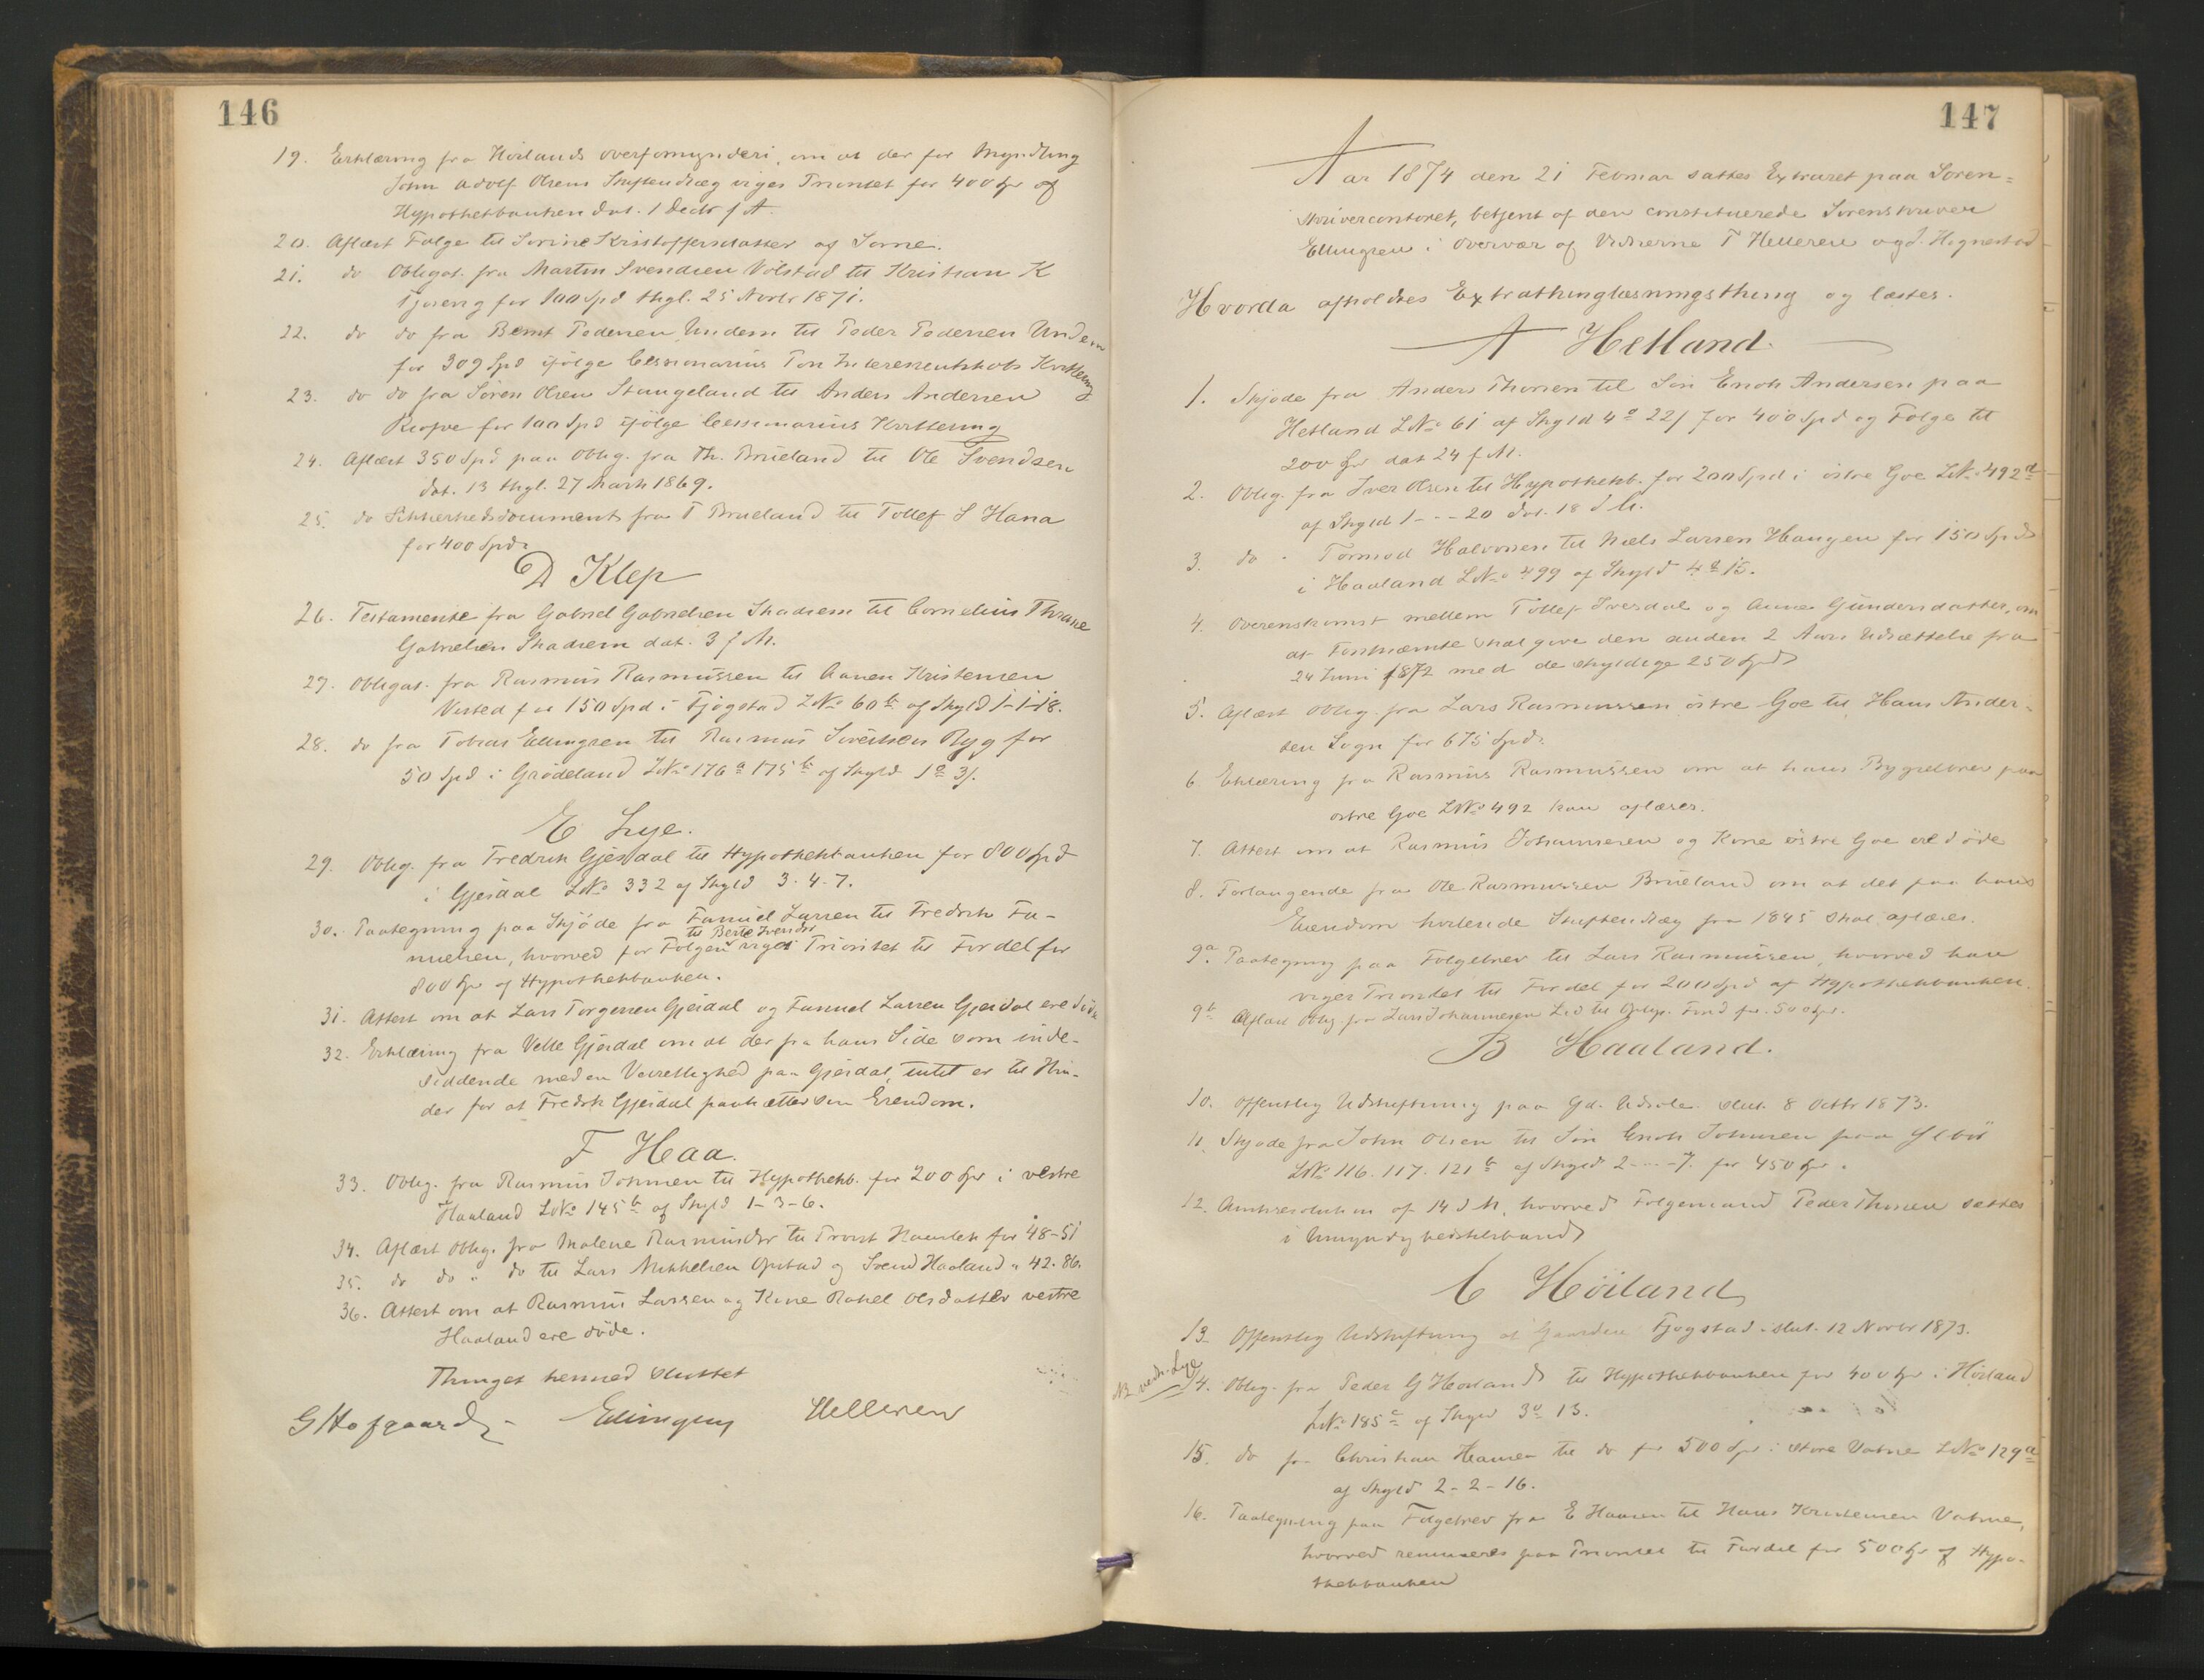 146
19. Erklæring fra Höilands overformynderi, om at der for Myndling
John Adolf Olsens Skiftendlæg viges Prioritet for 400 Spr af
Hypothekbanken dat. 1 Decbr f A.
20. Aflæst Folge til Serine Kristoffersdatter af Some.
21. do Obligat. fra Martin Svendsen Völstad til Kristian K
Tjoreng for 100 Spd thgl. 25 Novbr 1871.
22. do do fra Bernt Pedersen Undem til Peder Pedersen Undem
for 309 Spd ifölge Cessionarius Ton Interessentskabs Kvittering
23. do do fra Sören Olsen Stangeland til Anders Andersen
Riopve for 100 Spd ifölge Cessionarius Kvittering
24. Aflæst 350 Spd paa Oblig. fra Th. Brueland til Ole Svendsen
dat. 13 thgl. 27 Marh 1869.
25. do Sikkerhedsdocument fra T Brueland til Tollef S Hana
for 400 Spd.
D Klep
26. Testamente fra Gabriel Gabrielsen Skadsem til Cornelius Thrane
Gabrielsen Skadsem dat. 3 f M.
27. Obligat. fra Rasmus Rasmussen til Aanen Kristensen
Vested for 150 Spd i Tjögstad LNo 60b af Skyld 1-1-18.
28. do fra Tobias Ellingsen til Rasmus Sivertsen Byg for
50 Spd i Grödeland LNo 176a 175b af Skyld 1d 3/.
E Lye.
29. Oblig. fra Fredrik Gjesdal til Hypothekbanken for 800 Spd
i Gjesdal LNo 332 af Skyld 3.4.7.
30. Paategning paa Skjöde fra Famuel Larsen til Fredrik Fa-
til Berte Svendsd
muelsen, hvorved for Folgen viges Prioritet til Fordel for
800 Spr af Hypothekbanken.
31. Attest om at Lars Torgersen Gjesdal og Famuel Larsen Gjesdal ere döde
32. Erklæring fra Velle Gjesdal om at der fra hans Side som inde-
siddende med en Veirettighed paa Gjesdal, intet er til Hin-
der for at Fredrik Gjesdal pantsætter sin Eiendom.
F Haa.
33. Oblig. fra Rasmus Johnsen til Hypothekb. for 200 Spr i vestre
Haaland LNo 145b af Skyld 1-3-6.
34. Aflæst Oblig. fra Malene Rasmusdtr til Provst for 48-51
35. do do " do til Lars Mikkelsen Opstad og Svend Haaland " 42.86.
36. Attest om at Rasmus Larsen og Kone Rakel Olsdatter vestre
Haaland ere döde.
Thinget hermed sluttet
G Hofgaard Ellingsen Helleren
147
Aar 1874 den 21 Februar sattes Extraret paa Soren-
skrivercontoret, betjent af den constituerede Sorenskriver
Ellingsen i Overvær af Vidnerne T Helleren og J. Hognestad
Hvorda afholdtes Extrathinglæsningsthing og læstes.
A Hetland.
1. Skjöde fra Anders Thorsen til Sön Enok Andersen paa
Hetland LNo 61 af Skyld 4d 22/ for 400 Spd og Folge til
200 Spr dat 24 f M.
2. Oblig. fra Iver Olsen til Hypothekb. for 200 Spd i östre Goe LNo 492d
af Skyld 1 - - - 20 dat. 18 d M.
3. do " Tormod Halvorsen til Niels Larsen Haugen for 150 Spd
i Haaland LNo 499 af Skyld 4d 15.
4. Overenskomst mellem Tollef Ivesdal og Anne Gundersdatter, om
at Förstnævnte skal give den anden 2 Aars Udsættelse fra
24 Juni 1872 med de skyldige 250 Spd
5. Aflæst Oblig. fra Lars Rasmussen östre Goe til Hans Ander-
sen Sogn for 675 Spd.
6 Erklæring fra Rasmus Rasmussen om at hans Bygselbrev paa
östre Goe LNo 492 kan aflæses.
7. Attest om at Rasmus Johannesen og Kone östre Goe ere döde
8. Forlangende fra Ole Rasmussen Brueland om at det paa hans
Eiendom hvilende Skiftendlæg fra 1845 skal aflæses.
9a. Paategning paa Folgebrev til Lars Rasmussen, hvorved han
viger Prioritet til Fordel for 200 Spd af Hypothekbanken.
9b Aflæst Oblig fra Lars Johannesen Lid til Oplys. Fond for 500 Spr.
B Haaland.
10. Offentlig Udskiftning paa Gd. Udsole slut. 8 Octbr 1873.
11. Skjöde fra John Olsen til Sön Enok Johnsen paa
LNo 116. 117. 121b af Skyld 2 - - - 7. for 450 Spr.
12. Amtsresolution af 14 d M, hvorved Folgemand Peder Thorsen sættes
i Umyndighedstilstand
C Höiland
13. Offentlig Udskiftning af Gaarden Tjogstad slut. 12 Novbr 1873.
NB vedk. Lye
14. Oblig. fra Peder G Höiland til Hypothekbanken for 400 Spr i Höiland
LNo 185c af Skyld 3d 13.
15. do fra Christian Hansen til do for 500 Spr i store Vatne LNo 129a
af Skyld 2-2-16.
16. Paategning paa Folgebrev fra E Hansen til Hans Kristensen Vatne,
hvorved renunceres paa Prioritet til Fordel for 500 Spr af Hypo-
thekbanken